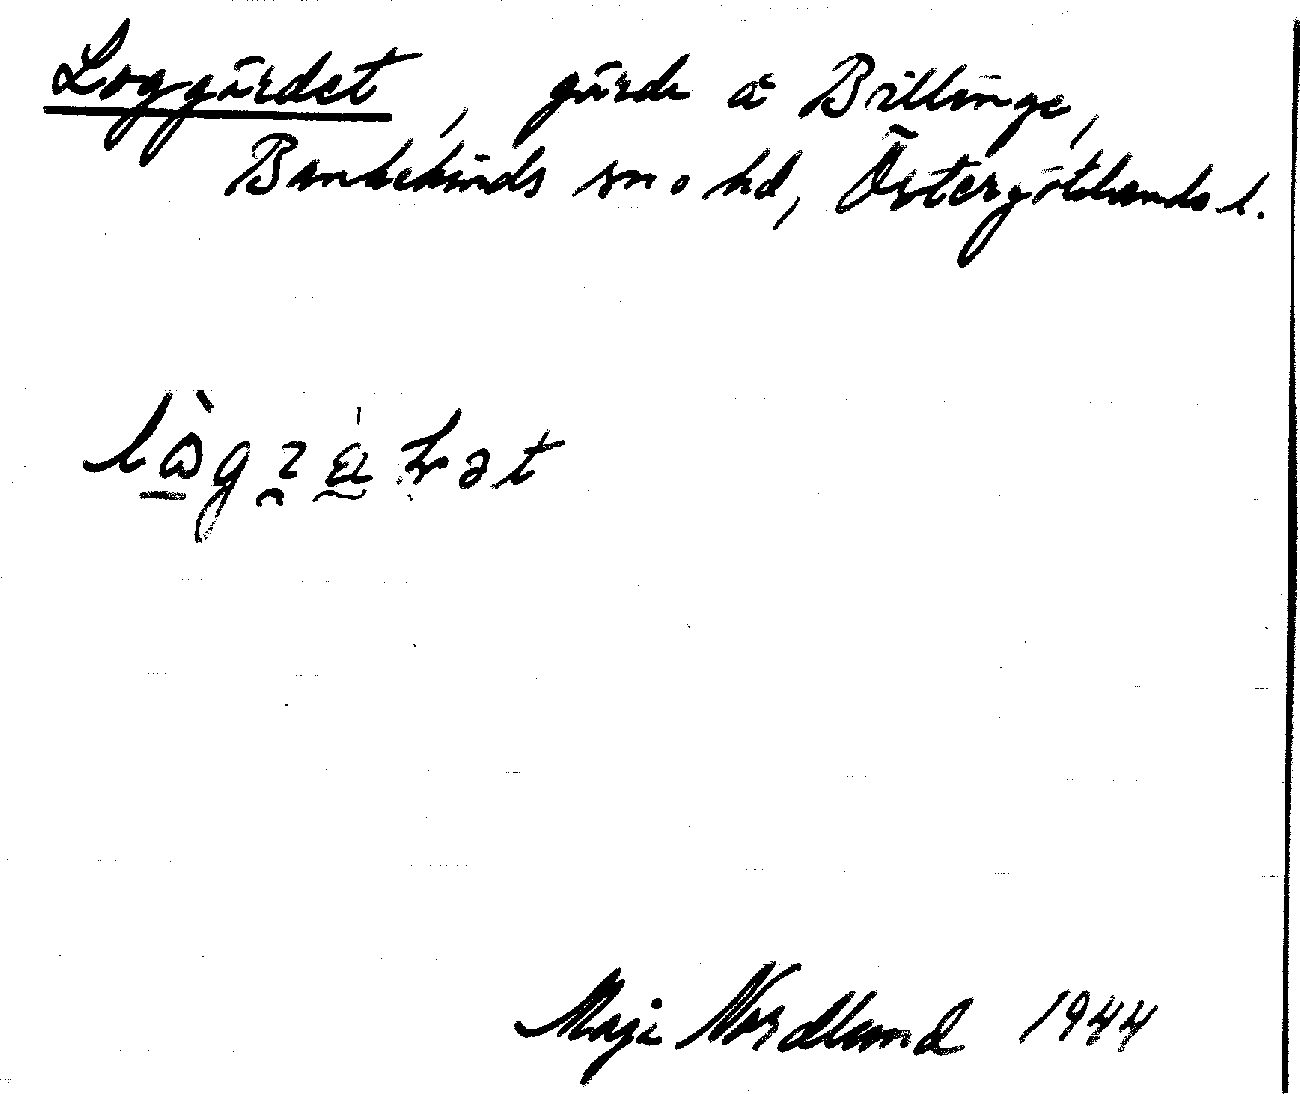 Loggärdet, gärde å Billinge,
Bankekinds sn o hd, Östergötlands l.
Maja Nordlund 1944